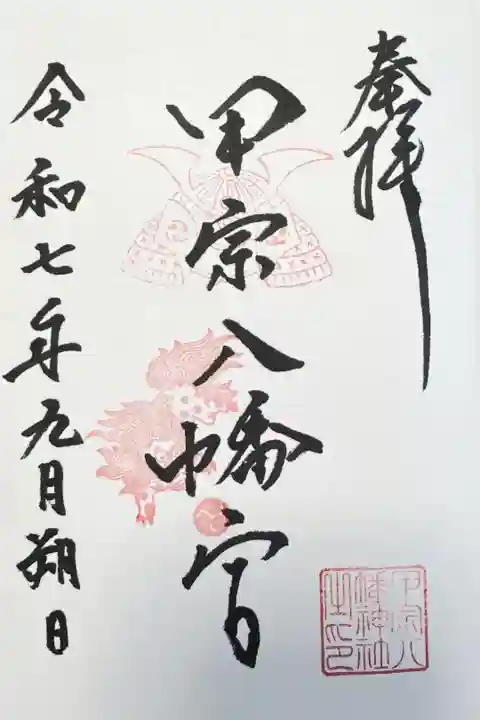 奉拝
甲宗八幡宮
甲宗八
幡神社
之印
令和七年九月朔日